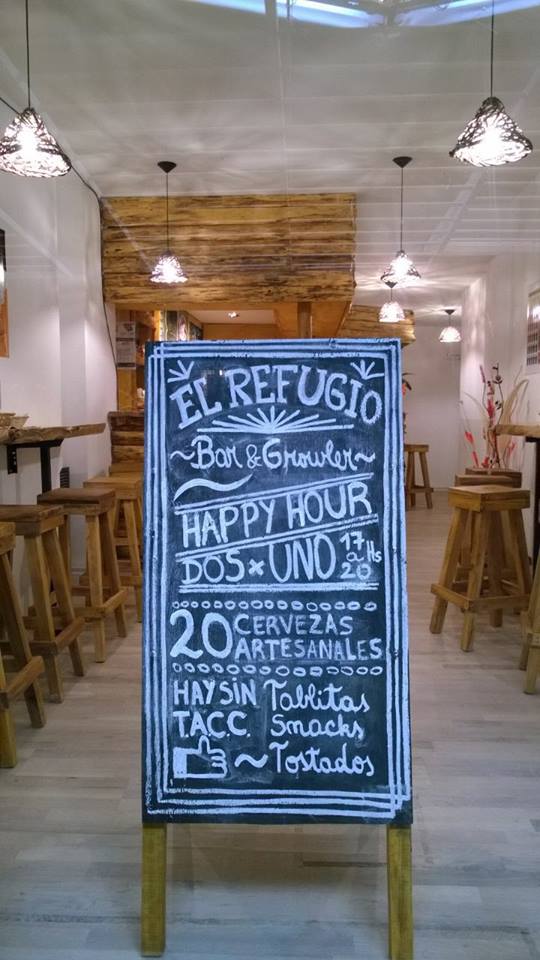 EL REFUGIO
~Bar & Growler~
HAPPY HOUR
DOS x UNO 17 a 20 Hs
20 CERVEZAS ARTESANALES
HAY SIN T.A.C.C.
Tablitas
Smacks
~Tostados